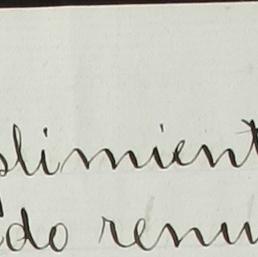 plimient
do renu